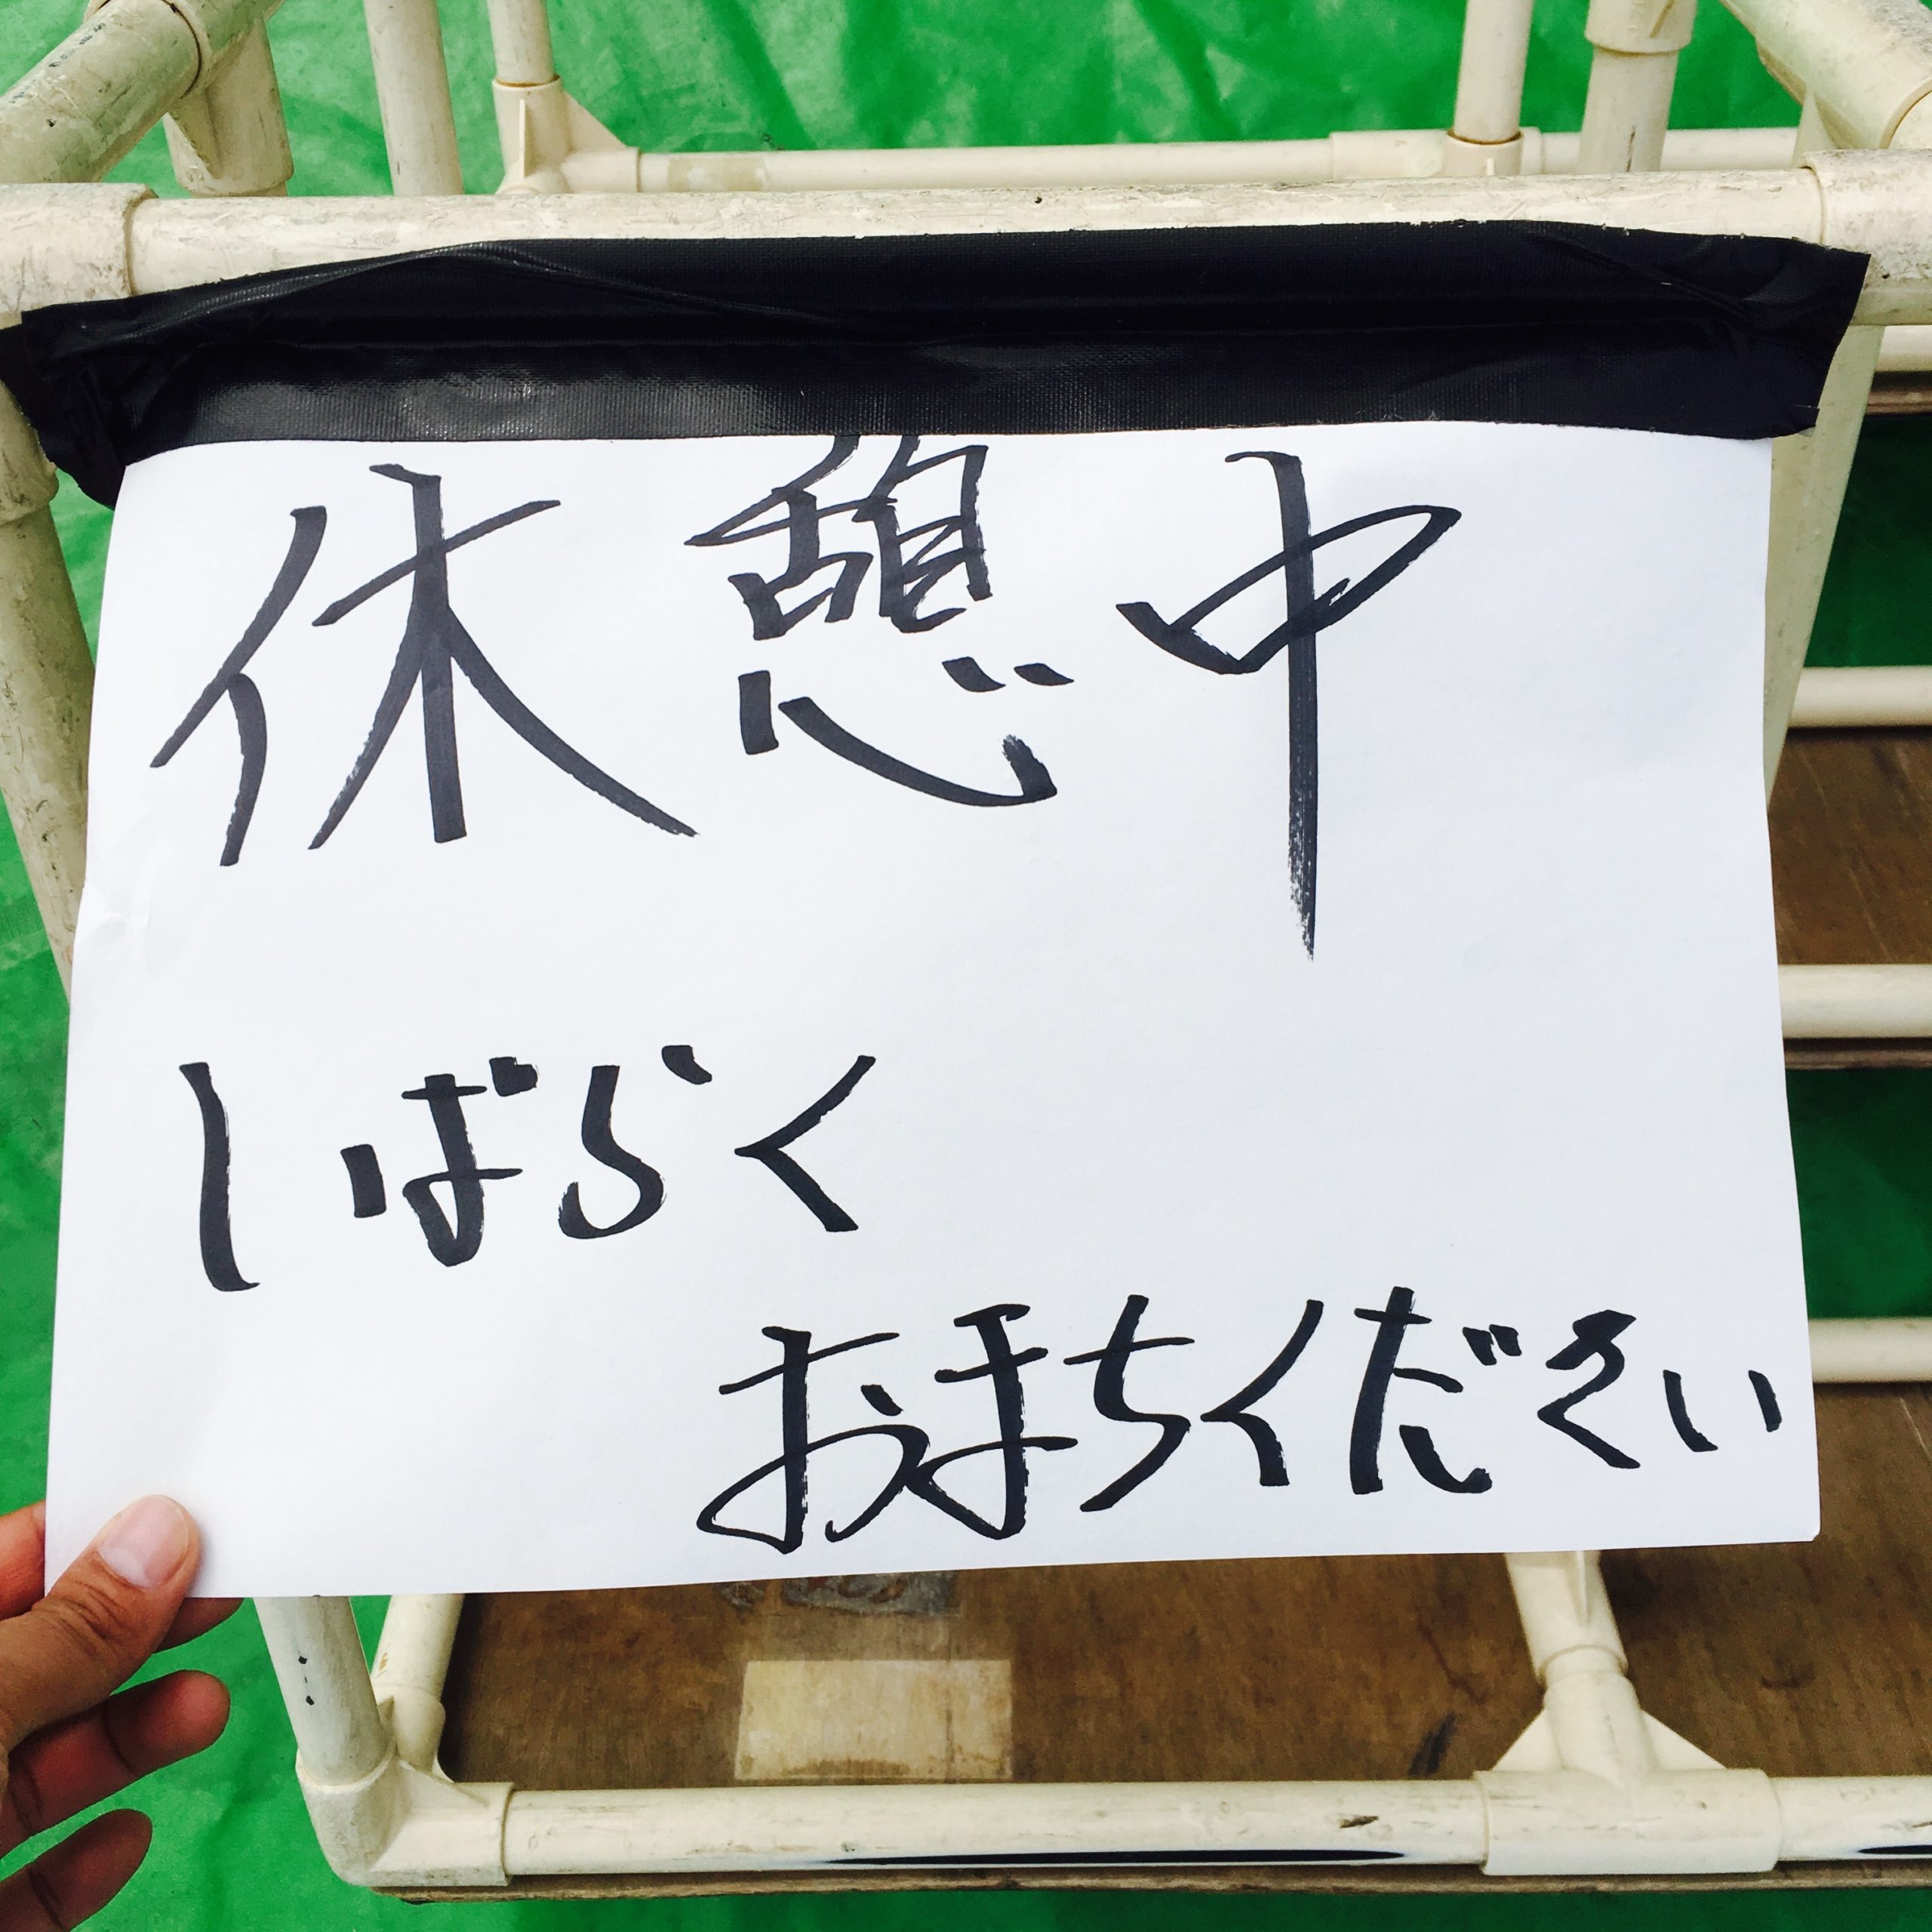 休憩中
しばらく
お待ちください